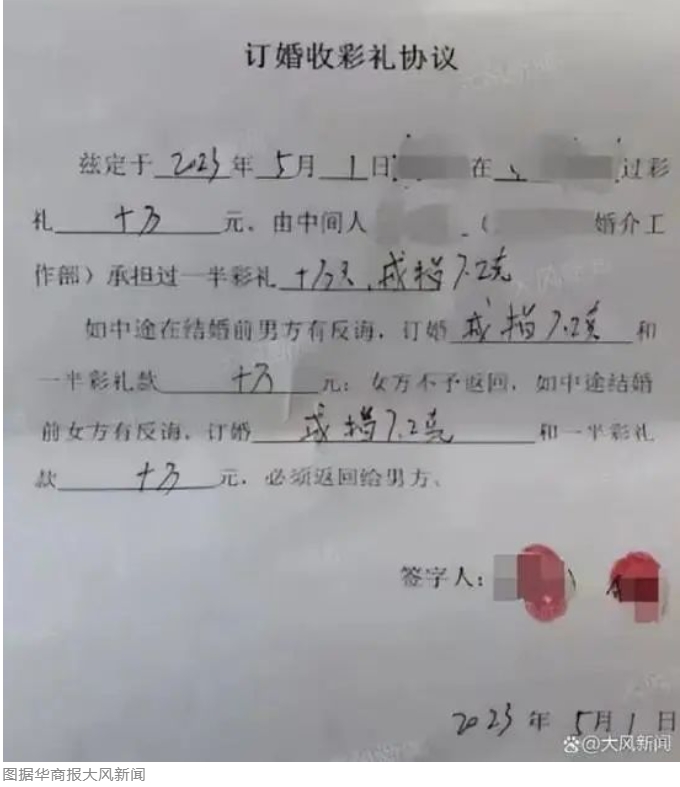 订婚收彩礼协议
兹定于2023年5月1日 在 过彩
礼十万元，由中间人 （ 婚介工
作部）承担过一半彩礼十万元，戒指7.2克
如中途在结婚前男方有反海，订婚戒指7.2克和
一半彩礼款十万元；女方不予返回，如中途结婚
前女方有反海，订婚戒指7.2克和一半彩礼
款十万元，必须返回给男方、
签字人：
2023年5月1日
@大风新闻
图据华商报大风新闻